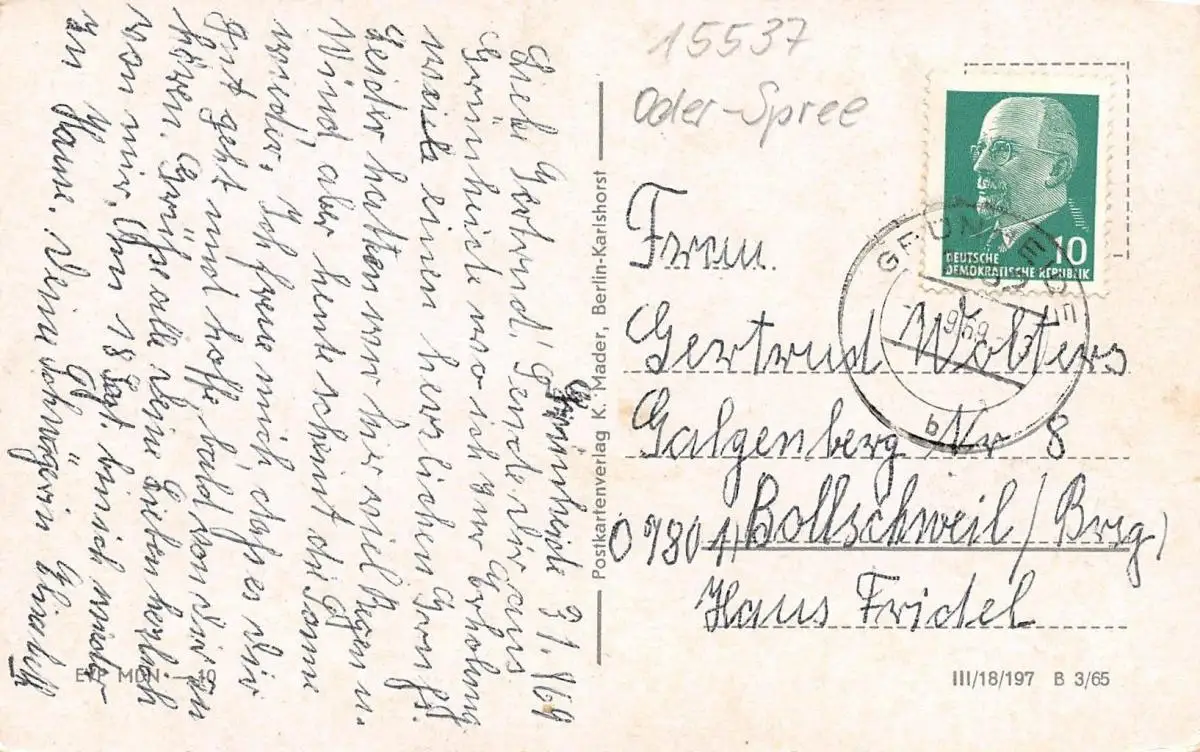 15537
Oder-Spree
DEUTSCHE
DEMOKRATISCHE REPUBLIK
10
GRÜNHEIDE
b
Grünheide
Liebe Gertrud! Sende Dir aus
Grünheide wo ich zur Erholung
weile einen herzlichen Gruß.
Leider hatten wir hier viel Regen u.
Wind, aber heute scheint die Sonne
wieder. Ich freue mich daß es Dir
Gut geht und hoffe bald von Dir zu
hören. Grüße alle Deine Lieben herzlich
von mir. Am 18 Sept. bin ich wieder
zu Hause. Deine Schwägerin Elisabeth
Postkartenverlag K. Mader, Berlin-Karlshorst
Frau
Gertrud Wolters
Galgenberg Nr 8
Bollschweil / Brsg)
Haus Fridel
EVP MDN —.10
III/18/197 B 3/65